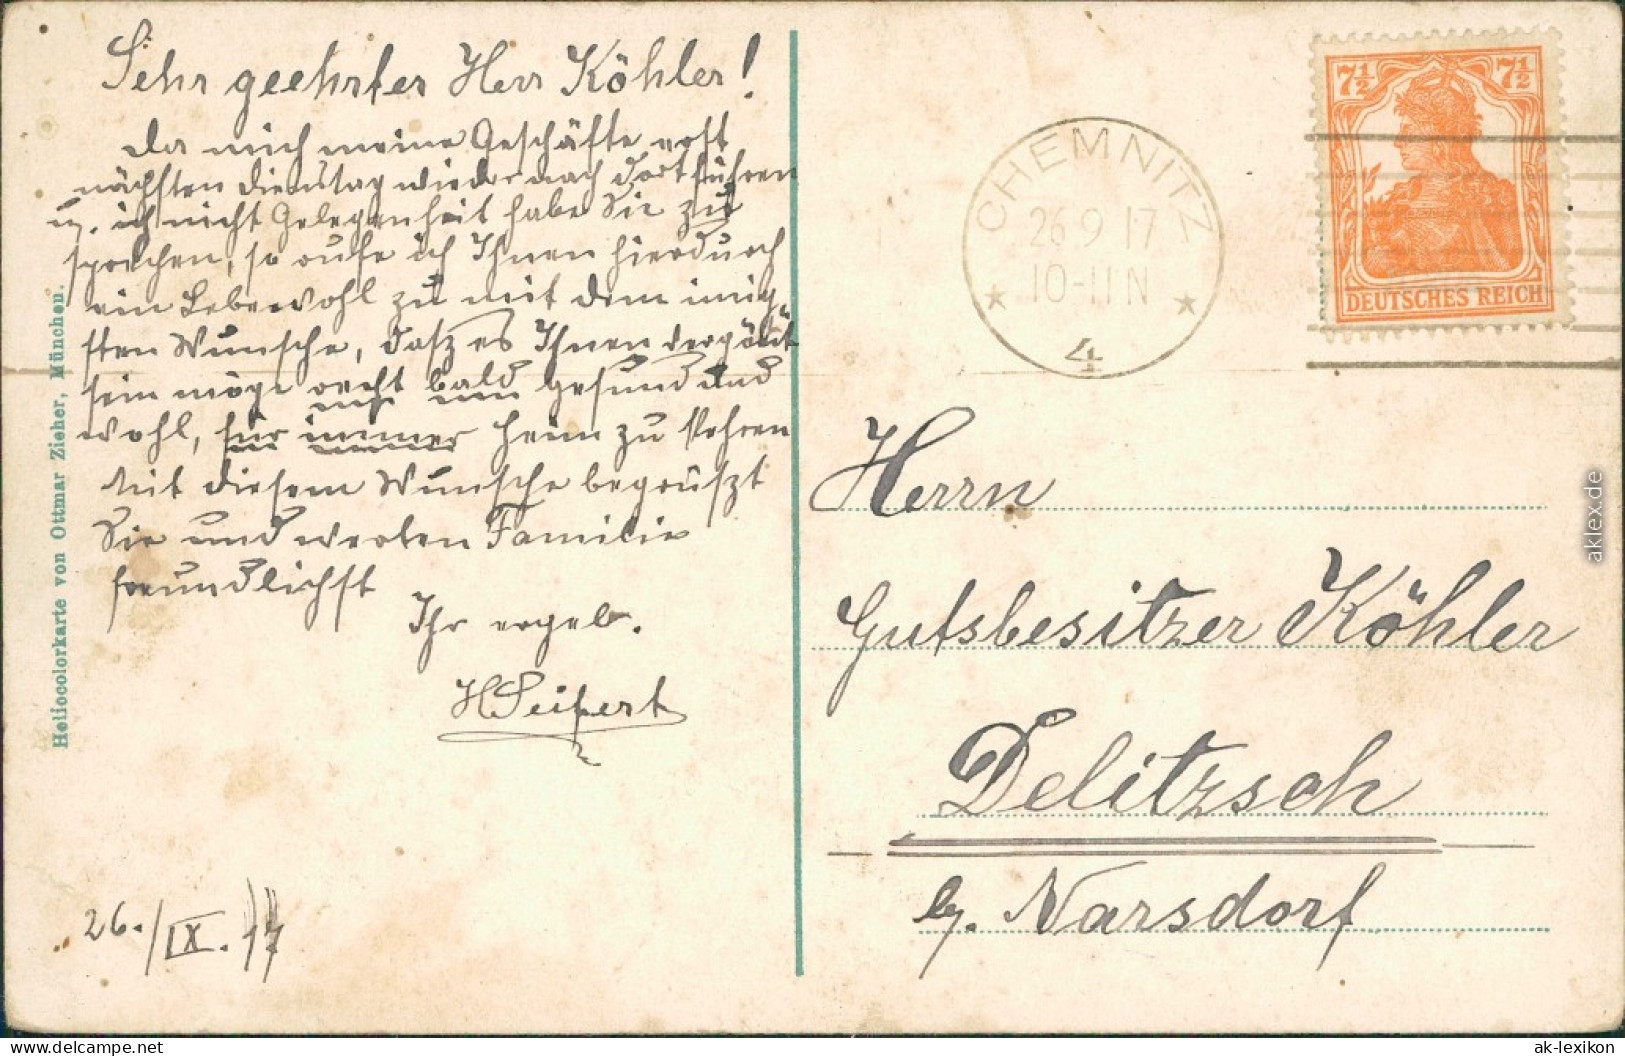 Sehr geehrter Herr Köhler!
Da mich meine Geschäfte erst
nächsten Dienstag wieder nach dort führen
u. ich nicht Gelegenheit habe Sie zu
sprechen, so rufe ich Ihnen hierdurch
ein Lebewohl zu mit dem innig-
sten Wunsche, dasz es Ihnen vergönt
sein möge recht bald gesund und
wohl, für immer heim zu kehren
Mit diesem Wunsche begrüszt
Sie und werten Familie
freundlichst
Ihr ergeb.
H Seifert
26./IX. 17
Heliocolorkarte von Ottmar Zieher, München.
CHEMNITZ
26 9 17
10-11 N
4
7½ 7½
DEUTSCHES REICH
Herrn
Gutsbesitzer Köhler
Delitzsch
b/. Narsdorf
aklex.de
delcampe.net
ak-lexikon